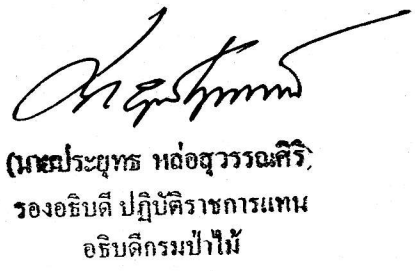 (นายประยุทธ หล่อสุวรรณศิริ)
รองอธิบดี ปฏิบัติราชการแทน
อธิบดีกรมป่าไม้